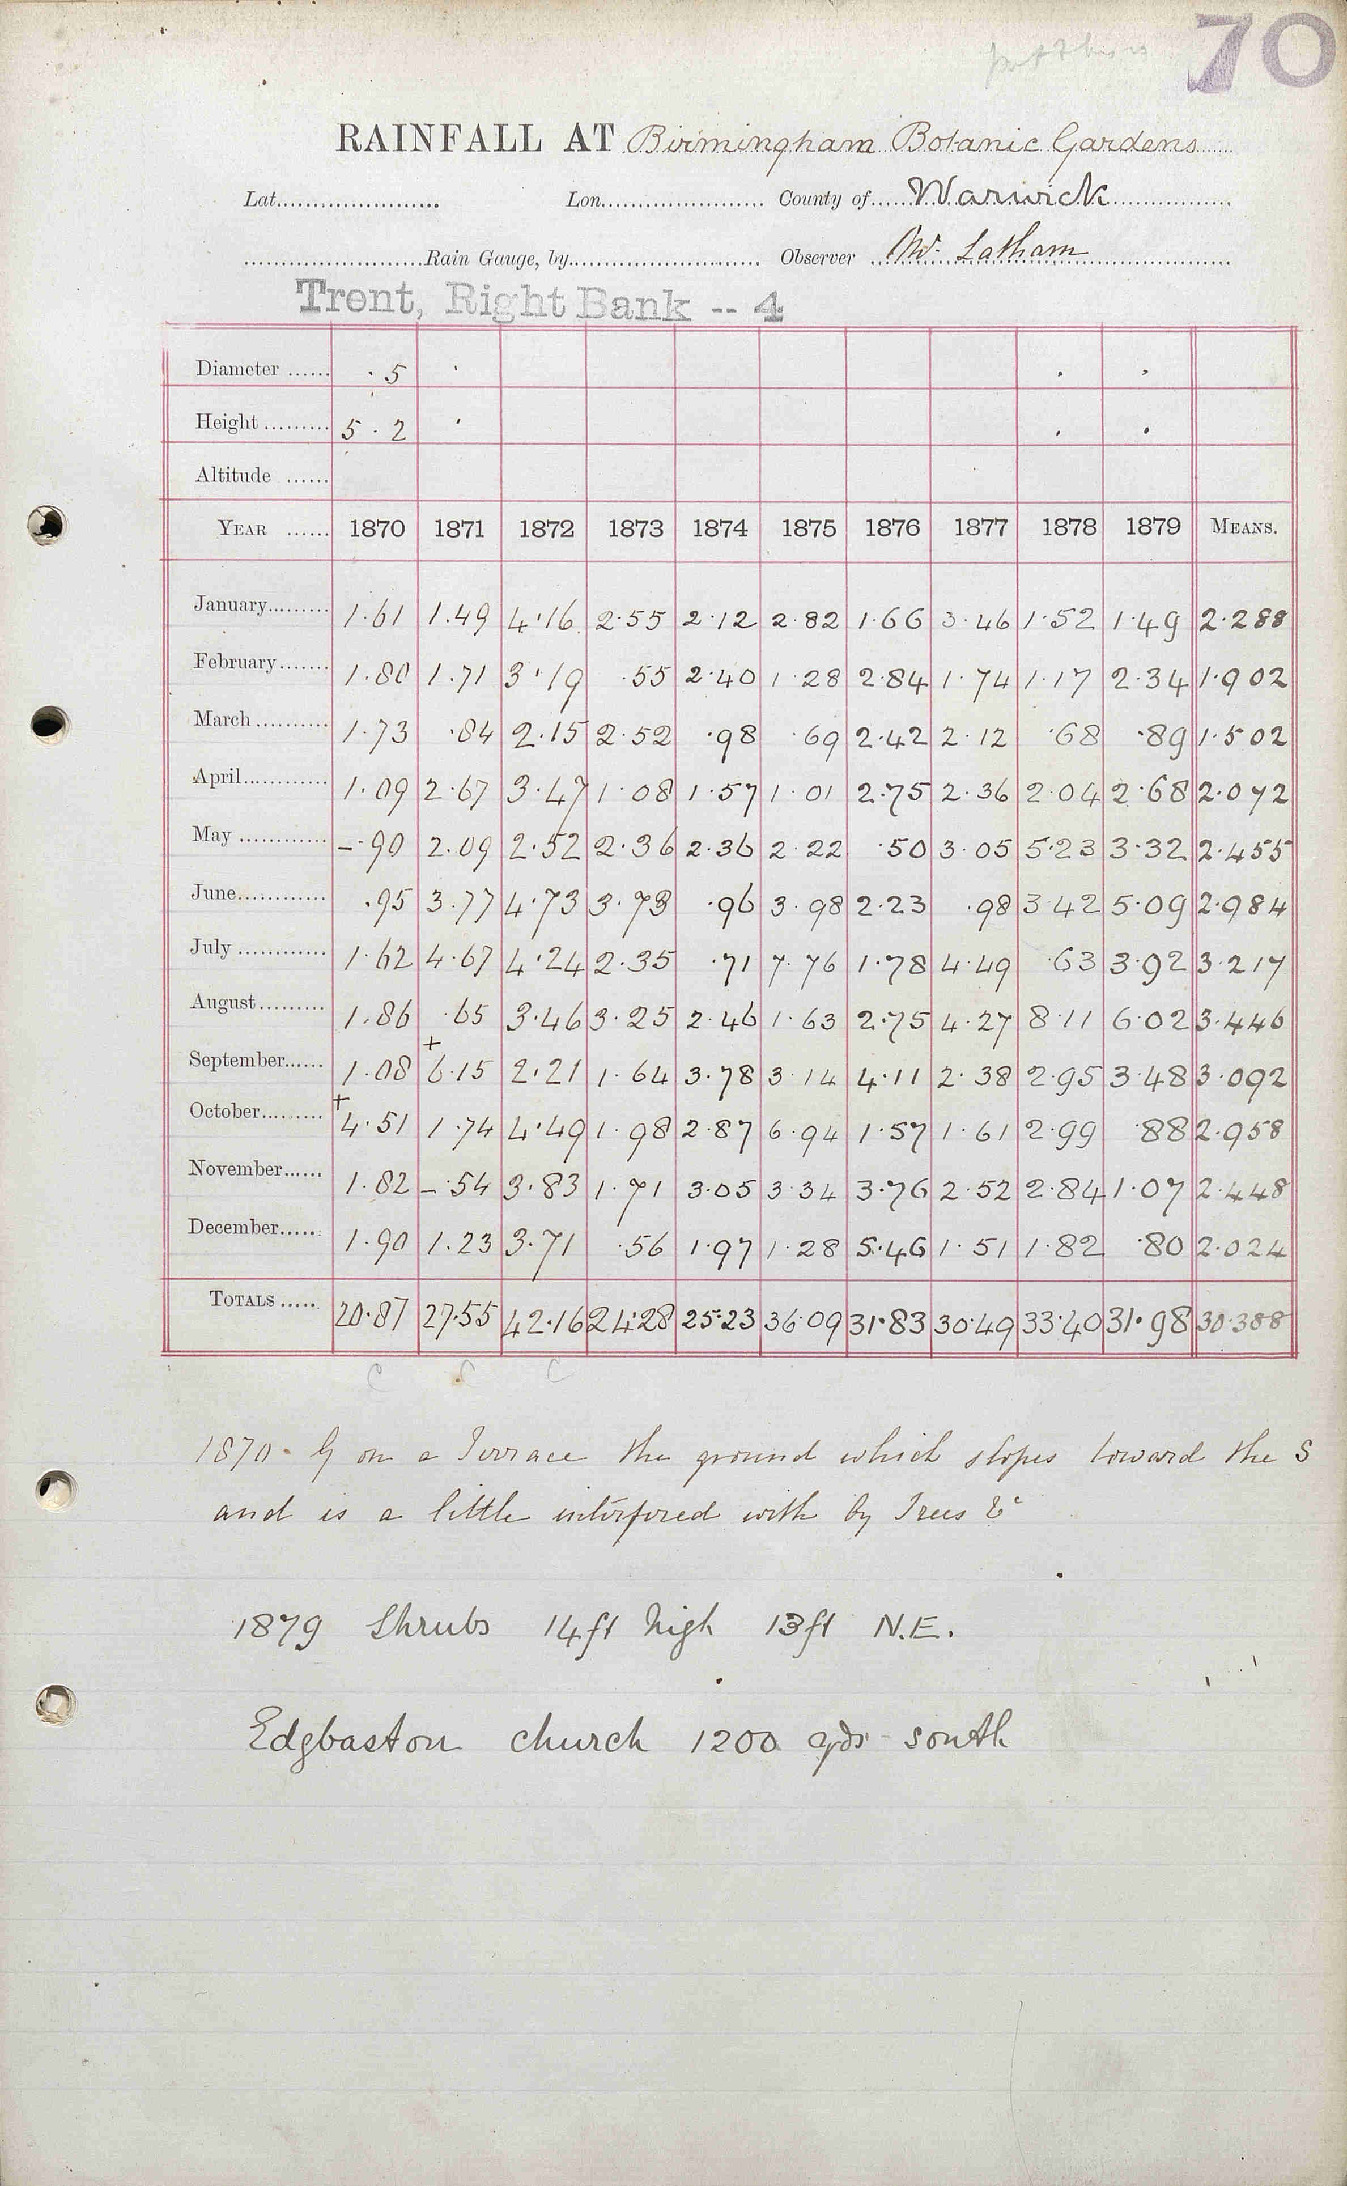 70
RAINFALL AT Birmingham Botanic Gardens
Lat. Lon. County of Warwick
Rain Gauge, by Observer Mr. Latham
Trent, Right Bank -- 4
Diameter ...... · 5
Height ......... 5 · 2
Altitude ......
YEAR ...... 1870 1871 1872 1873 1874 1875 1876 1877 1878 1879 MEANS.
January......... 1·61 1·49 4·16 2·55 2·12 2·82 1·66 3·46 1·52 1·49 2·288
February....... 1·80 1·71 3·19 ·55 2·40 1·28 2·84 1·74 1·17 2·34 1·902
March .......... 1·73 ·84 2·15 2·52 ·98 ·69 2·42 2·12 ·68 ·89 1·502
April............ 1·09 2·67 3·47 1·08 1·57 1·01 2·75 2·36 2·04 2·68 2·072
May ............. –·90 2·09 2·52 2·36 2·36 2·22 ·50 3·05 5·23 3·32 2·455
June............. ·95 3·77 4·73 3·73 ·96 3·98 2·23 ·98 3·42 5·09 2·984
July ............. 1·62 4·67 4·24 2·35 ·71 7·76 1·78 4·49 ·63 3·92 3·217
August......... 1·86 ·65 3·46 3·25 2·46 1·63 2·75 4·27 8·11 6·02 3·446
September...... 1·08 +6·15 2·21 1·64 3·78 3·14 4·11 2·38 2·95 3·48 3·092
October......... +4·51 1·74 4·49 1·98 2·87 6·94 1·57 1·61 2·99 ·88 2·958
November...... 1·82 –·54 3·83 1·71 3·05 3·34 3·76 2·52 2·84 1·07 2·448
December...... 1·90 1·23 3·71 ·56 1·97 1·28 5·46 1·51 1·82 ·80 2·024
TOTALS ..... 20·87 27·55 42·16 24·28 25·23 36·09 31·83 30·49 33·40 31·98 30·388
C C C
1870 - G on a Terrace the ground which slopes toward the S
and is a little interfered with by Trees &c
1879 Shrubs 14ft high 13ft N.E.
Edgbaston church 1200 yds south